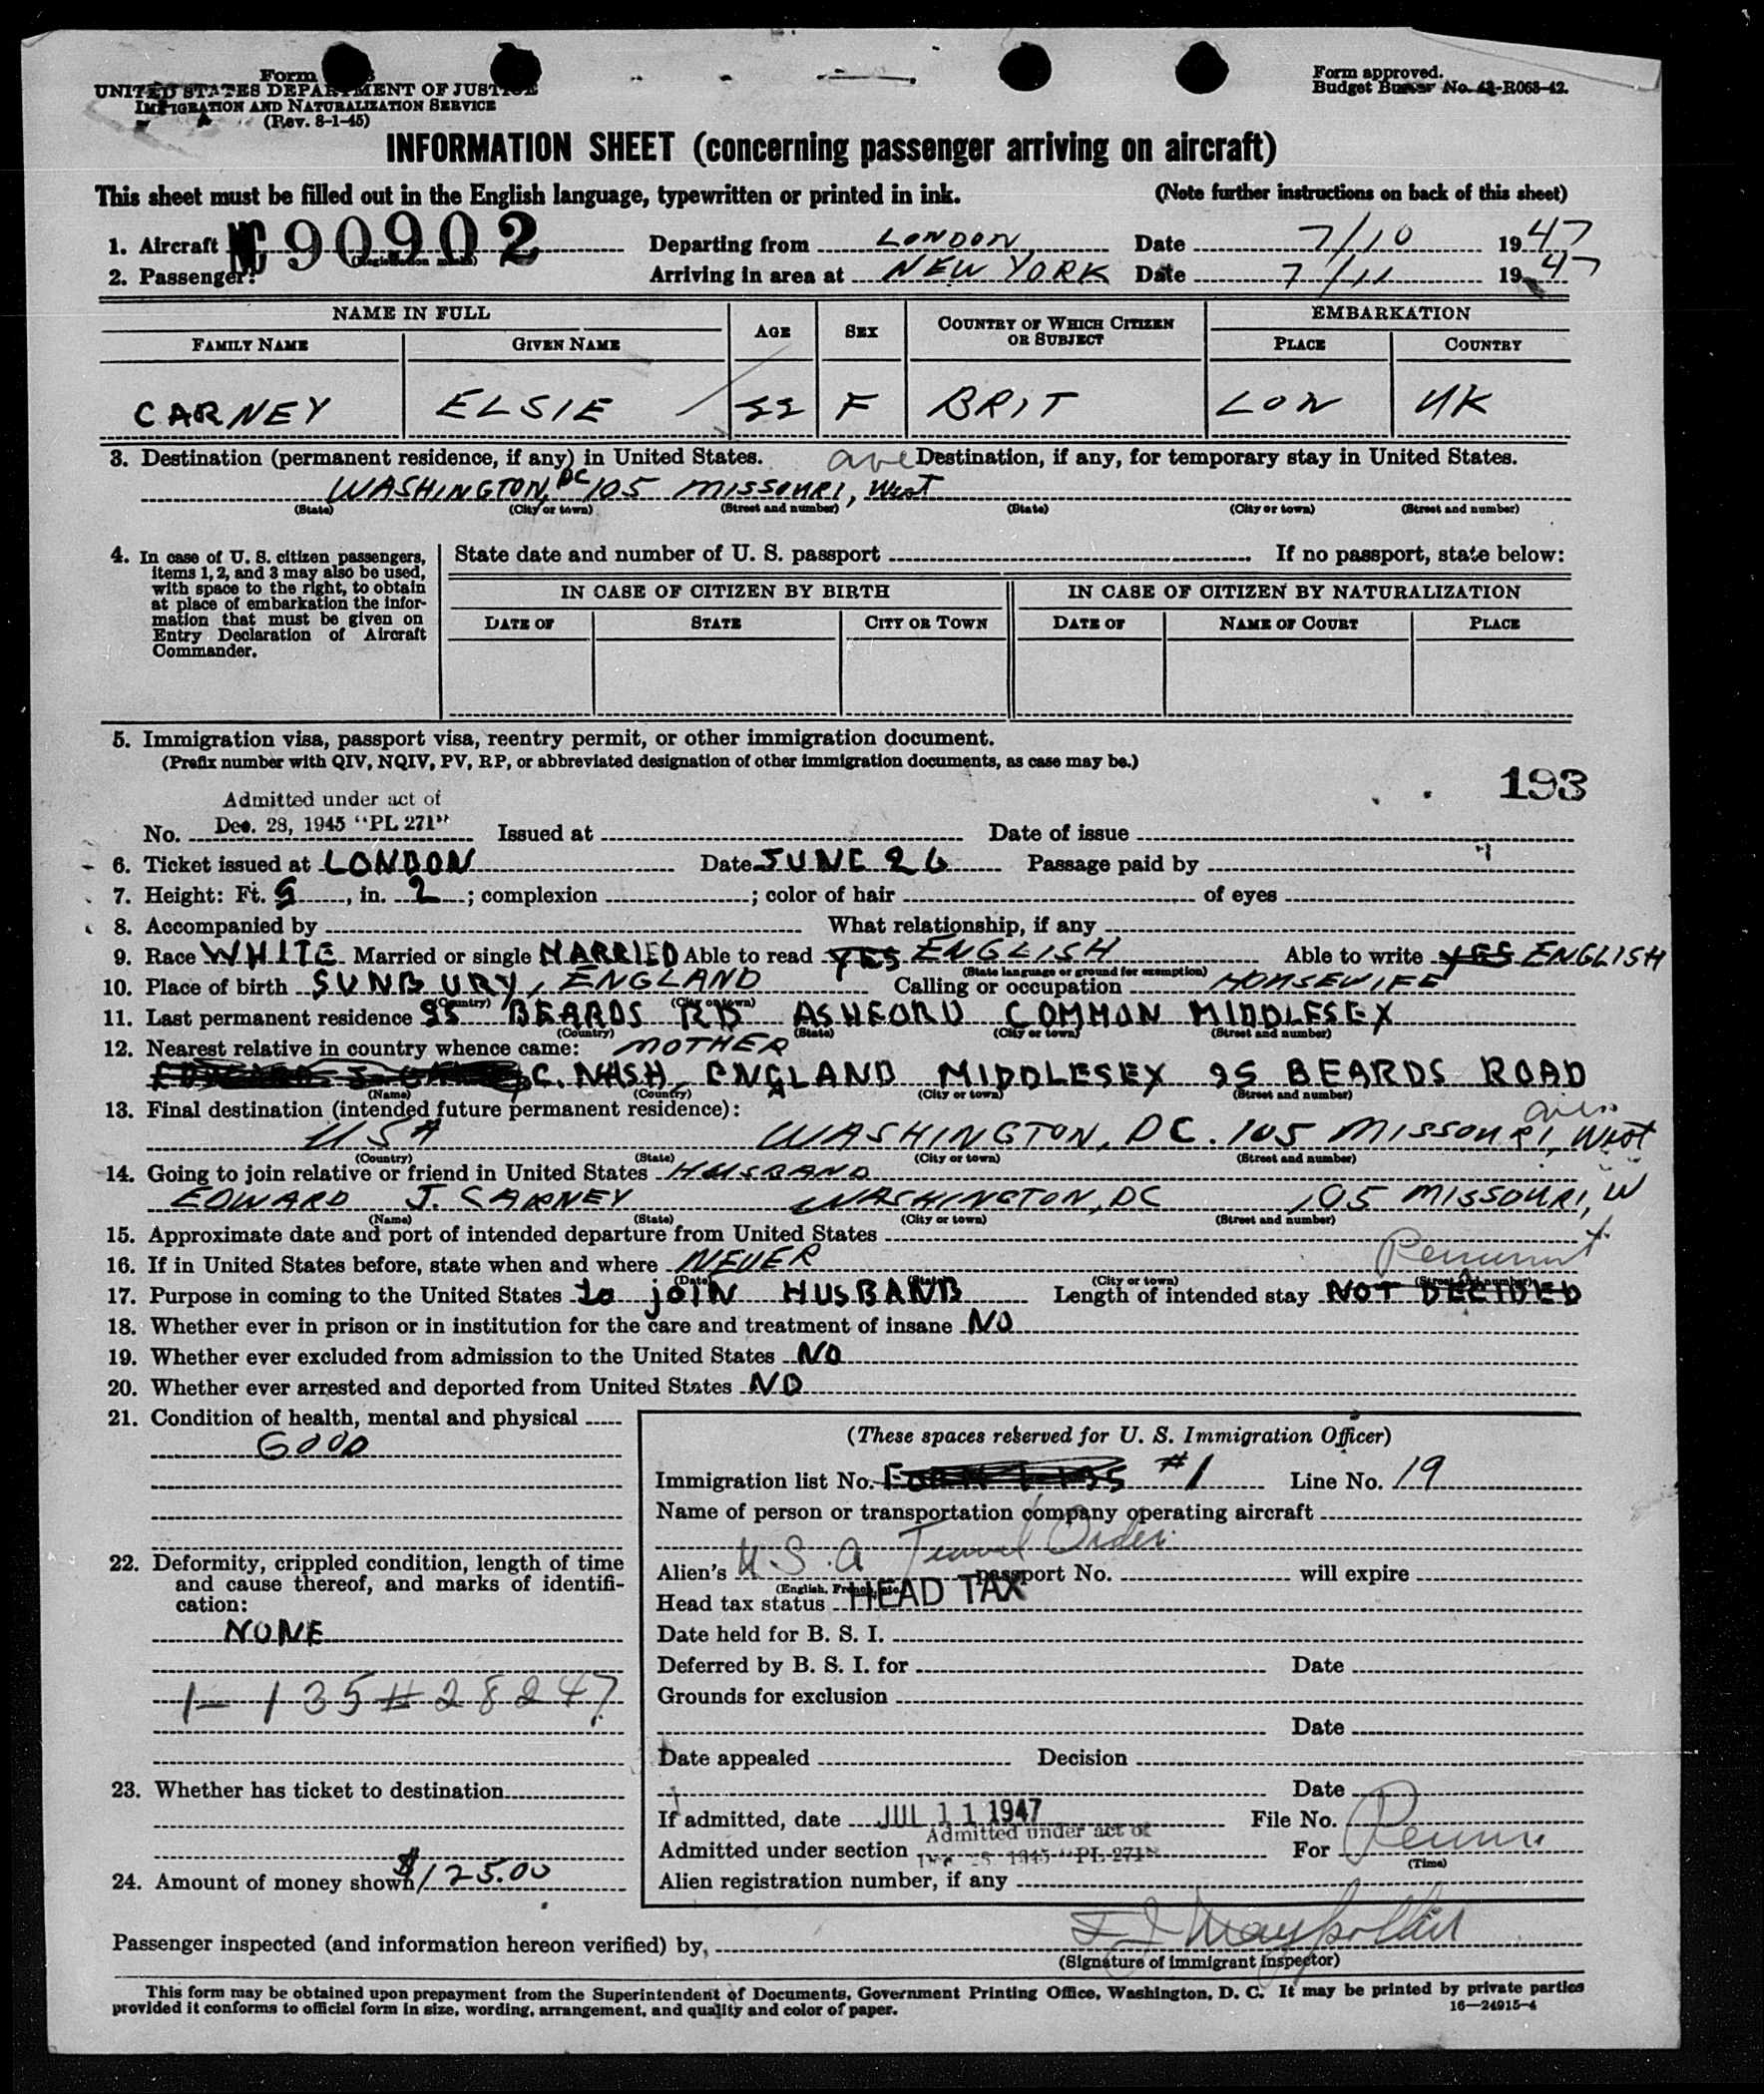 Form
UNITED STATES DEPARTMENT OF JUSTICE
IMMIGRATION AND NATURALIZATION SERVICE
(Rev. 8-1-45)
Form approved.
Budget Bureau No. 43-R068-42.
INFORMATION SHEET (concerning passenger arriving on aircraft)
This sheet must be filled out in the English language, typewritten or printed in ink. (Note further instructions on back of this sheet)
1. Aircraft NC 90902 Departing from LONDON Date 7/10 1947
2. Passenger: Arriving in area at NEW YORK Date 7/11 1947
NAME IN FULL AGE SEX COUNTRY OF WHICH CITIZEN OR SUBJECT EMBARKATION
FAMILY NAME GIVEN NAME PLACE COUNTRY
CARNEY ELSIE 22 F BRIT LON UK
3. Destination (permanent residence, if any) in United States. ave Destination, if any, for temporary stay in United States.
WASHINGTON, DC 105 MISSOURI, West
(State) (City or town) (Street and number) (State) (City or town) (Street and number)
4. In case of U. S. citizen passengers, items 1, 2, and 3 may also be used, with space to the right, to obtain at place of embarkation the information that must be given on Entry Declaration of Aircraft Commander.
State date and number of U. S. passport If no passport, state below:
IN CASE OF CITIZEN BY BIRTH IN CASE OF CITIZEN BY NATURALIZATION
DATE OF STATE CITY OR TOWN DATE OF NAME OF COURT PLACE
5. Immigration visa, passport visa, reentry permit, or other immigration document.
(Prefix number with QIV, NQIV, PV, RP, or abbreviated designation of other immigration documents, as case may be.)
193
Admitted under act of
No. Dec. 28, 1945 "PL 271" Issued at Date of issue
6. Ticket issued at LONDON Date JUNE 26 Passage paid by
7. Height: Ft. 5, in. 2; complexion ; color of hair of eyes
8. Accompanied by What relationship, if any
9. Race WHITE Married or single MARRIED Able to read YES ENGLISH Able to write YES ENGLISH
(State language or ground for exemption)
10. Place of birth SUNBURY, ENGLAND Calling or occupation HOUSEWIFE
(Country) (City or town)
11. Last permanent residence 95 BEARDS RD ASHFORD COMMON MIDDLESEX
(Country) (State) (City or town) (Street and number)
12. Nearest relative in country whence came: MOTHER
C. NASH, ENGLAND MIDDLESEX 95 BEARDS ROAD
(Name) (Country) (City or town) (Street and number)
13. Final destination (intended future permanent residence):
USA WASHINGTON, DC. 105 MISSOURI, West
(Country) (State) (City or town) (Street and number)
14. Going to join relative or friend in United States HUSBAND
EDWARD J. CARNEY WASHINGTON, DC 105 MISSOURI, W
(Name) (State) (City or town) (Street and number)
15. Approximate date and port of intended departure from United States
16. If in United States before, state when and where NEVER
(Date) (State) (City or town) (Street and number)
17. Purpose in coming to the United States to join HUSBAND Length of intended stay NOT DECIDED
18. Whether ever in prison or in institution for the care and treatment of insane NO
19. Whether ever excluded from admission to the United States NO
20. Whether ever arrested and deported from United States NO
21. Condition of health, mental and physical
GOOD
22. Deformity, crippled condition, length of time and cause thereof, and marks of identification:
NONE
1-135#28247
23. Whether has ticket to destination
24. Amount of money shown $125.00
(These spaces reserved for U. S. Immigration Officer)
Immigration list No. #1 Line No. 19
Name of person or transportation company operating aircraft
Alien's U.S.A Travel Order passport No. will expire
(English, French, etc.)
Head tax status HEAD TAX
Date held for B. S. I.
Deferred by B. S. I. for Date
Grounds for exclusion
Date
Date appealed Decision
Date
If admitted, date JUL 11 1947 File No.
Admitted under act of
Admitted under section Dec 28, 1945 "PL 271" For
(Time)
Alien registration number, if any
Passenger inspected (and information hereon verified) by,
(Signature of immigrant inspector)
This form may be obtained upon prepayment from the Superintendent of Documents, Government Printing Office, Washington, D. C. It may be printed by private parties
provided it conforms to official form in size, wording, arrangement, and quality and color of paper. 16—24915-4